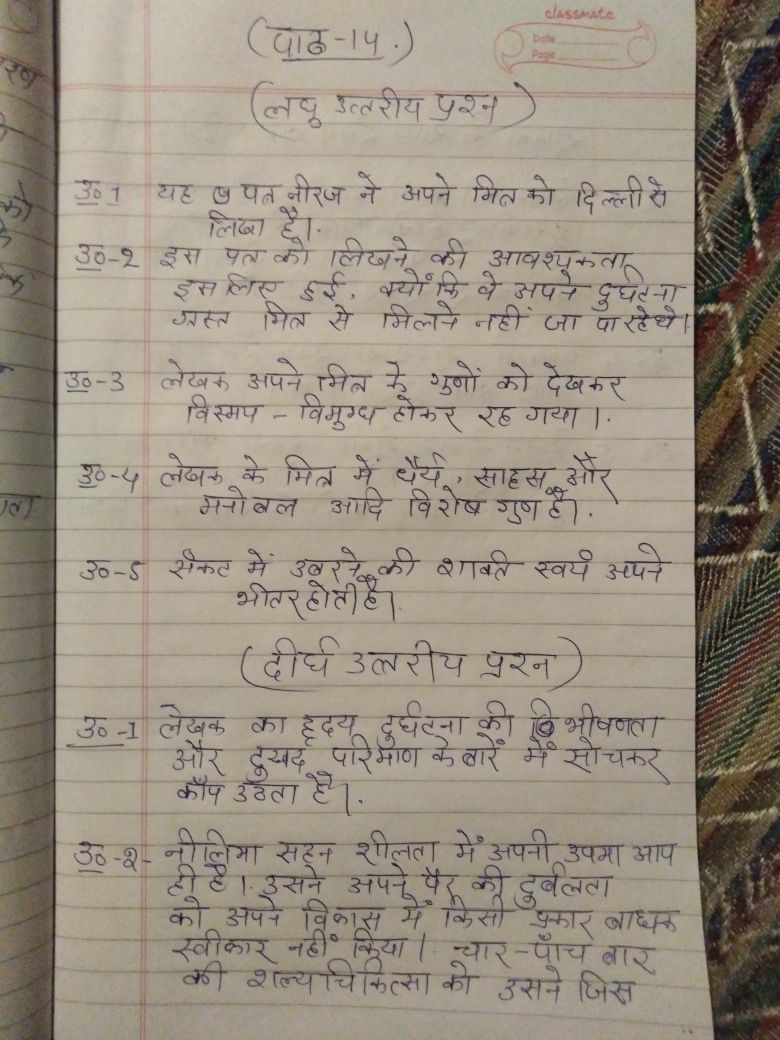 classmate
Date
Page
(पाठ-14.)
(लघु उत्तरीय प्रश्न)
उ०1 यह पत्र नीरज ने अपने मित्र को दिल्ली से
लिखा है।
उ०-2 इस पत्र को लिखने की आवश्यकता
इसलिए हुई, क्योंकि वे अपने दुर्घटना
ग्रस्त मित्र से मिलने नहीं जा पा रहे थे।
उ०-3 लेखक अपने मित्र के गुणों को देखकर
विस्मप - विमुग्ध होकर रह गया।
उ०-4 लेखक के मित्र में धैर्य, साहस और
मनोबल आदि विशेष गुण है।
उ०-5 संकट में उबरने की शक्ति स्वयं अपने
भीतर होती है।
(दीर्घ उत्तरीय प्रश्न)
उ०-1 लेखक का हृदय दुर्घटना की विभीषणता
और दुखद परिमाण के बारें में सोचकर
काँप उठता है।
उ०-2- नीलिमा सहन शीलता में अपनी उपमा आप
ही है। उसने अपने पैर की दुर्बलता
को अपने विकास में किसी प्रकार बाधक
स्वीकार नहीं किया। चार-पाँच बार
की शल्यचिकित्सा को उसने जिस